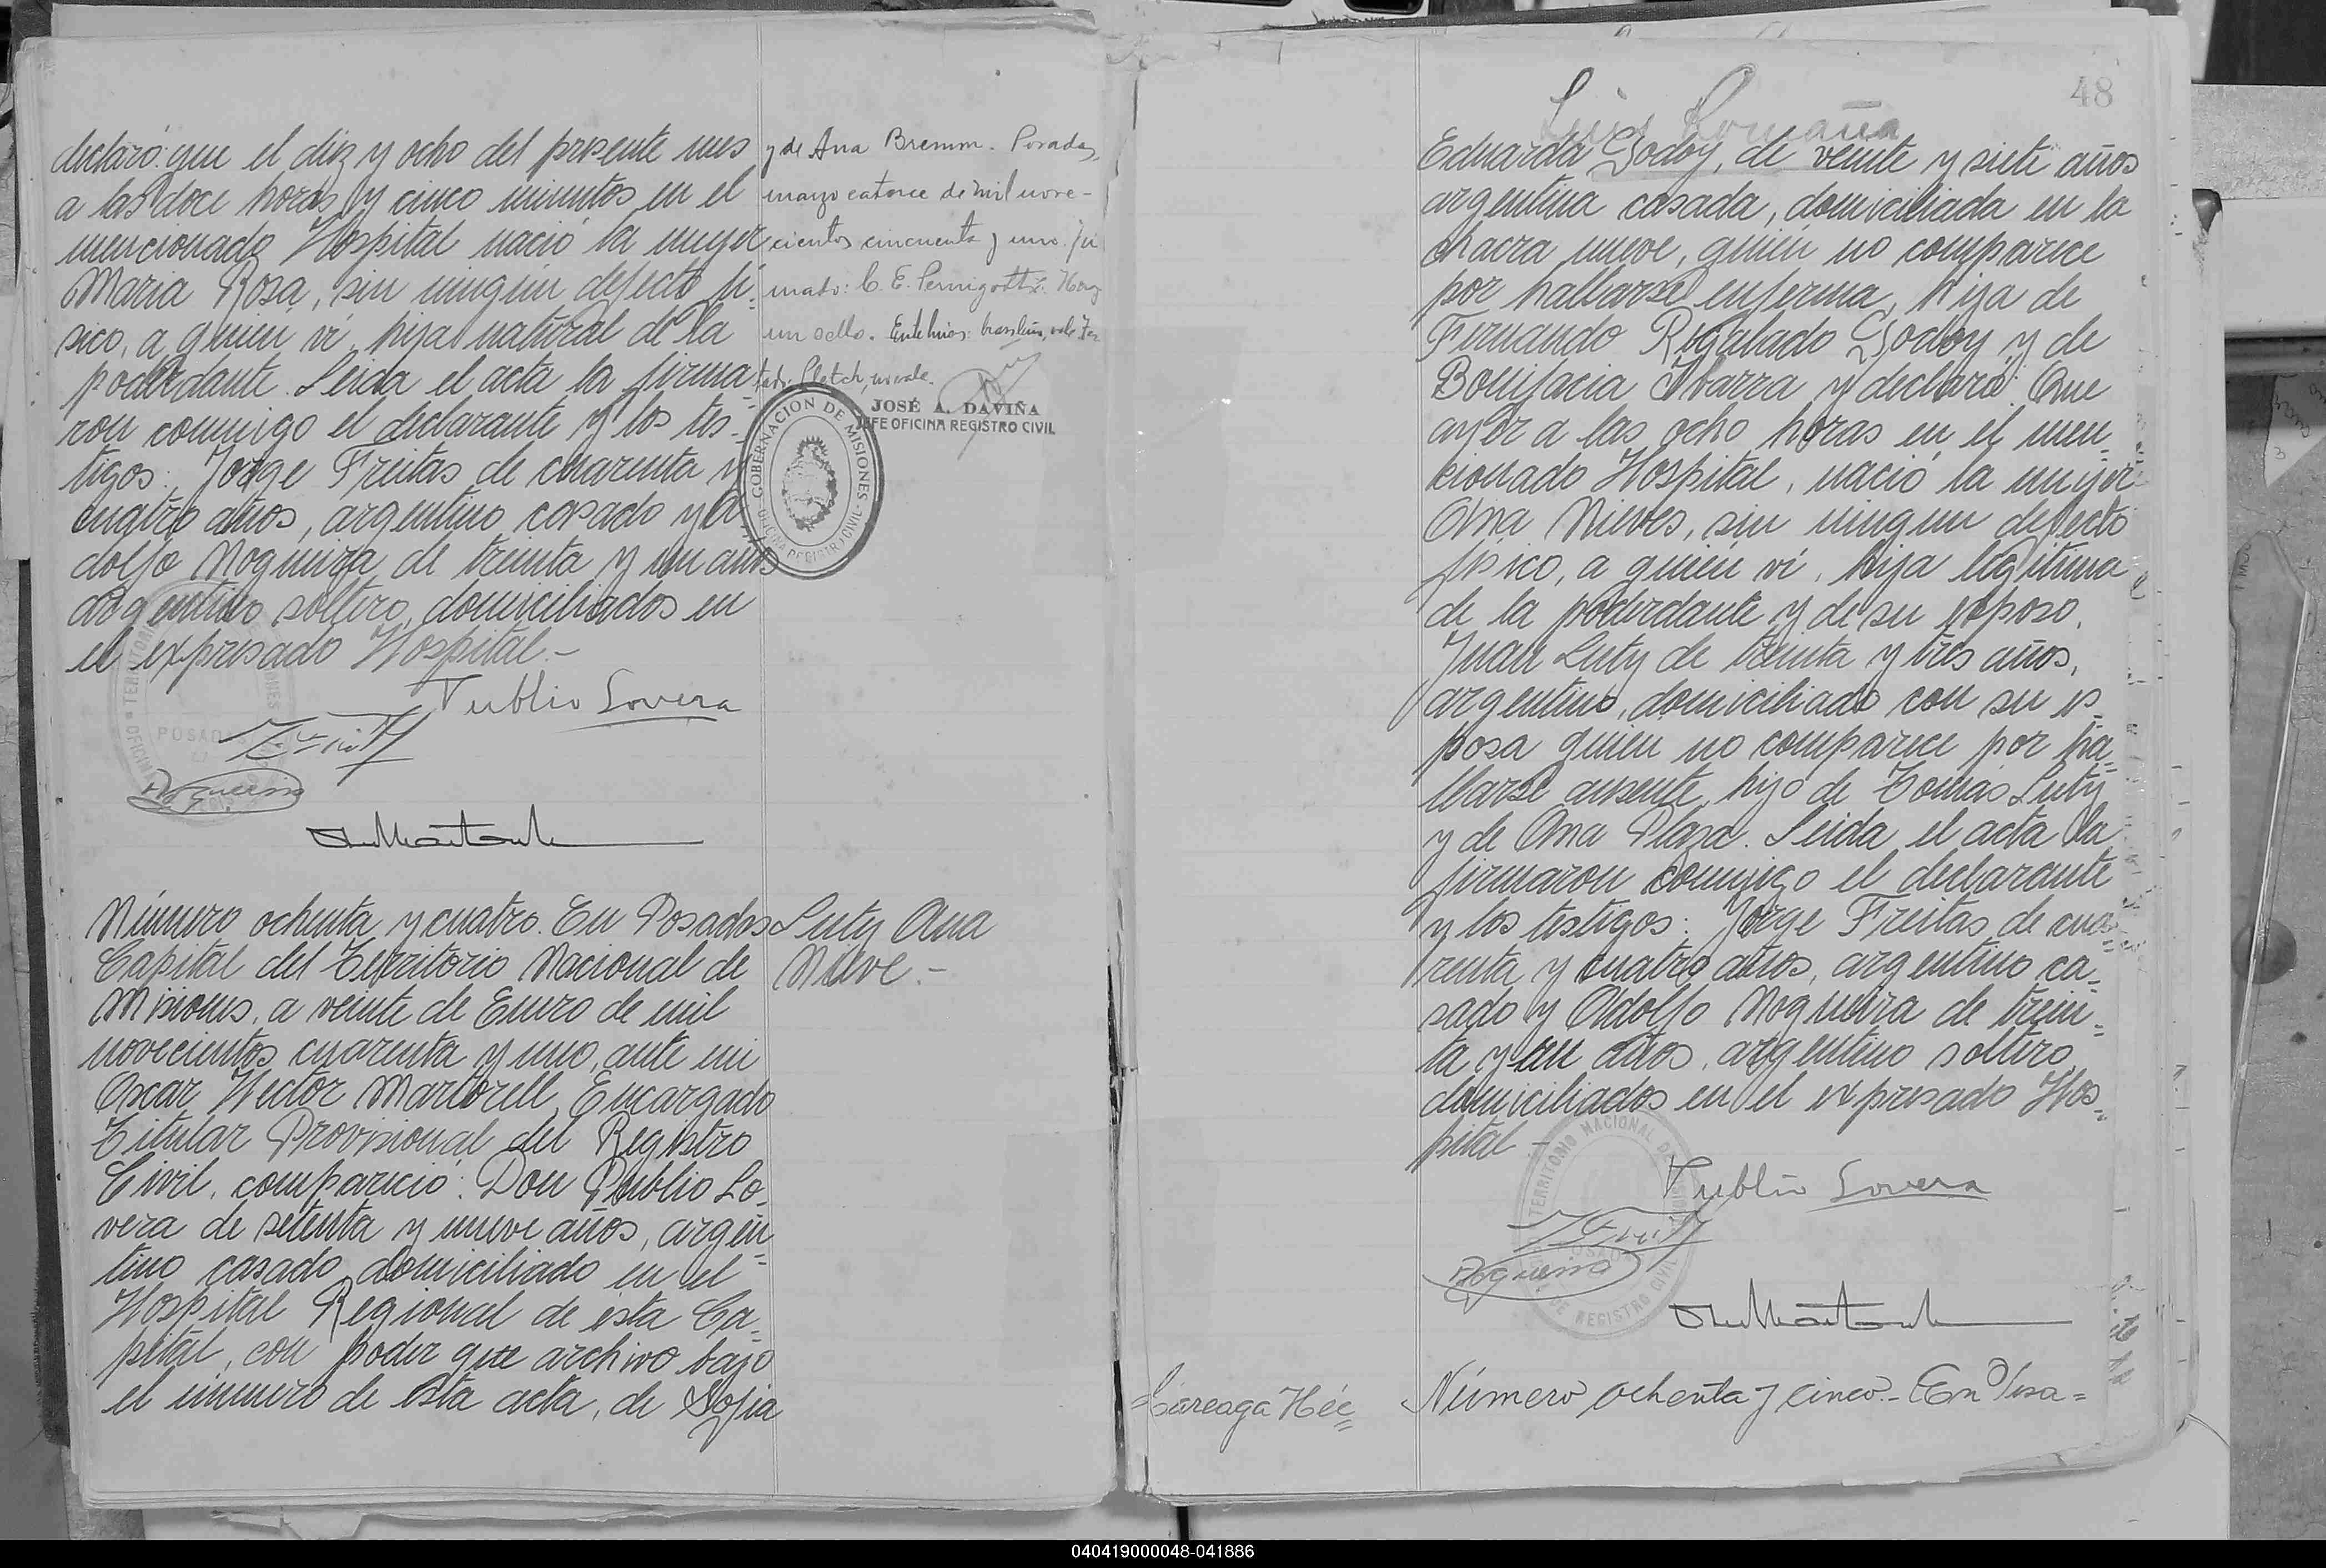 declaró: que el diez y ocho del presente mes
a las doce horas y cinco minutos en el
mencionado Hospital nació la mujer
Maria Rosa, sin ningún defecto fí-
sico, a quién ví, hija natural de la
poderdante. Leida el acta la firma-
ron conmigo el declarante y los tes-
tigos: Jorge Freitas de cuarenta y
cuatro años, argentino casado y A-
dolfo Nogueira de treinta y un años
argentino soltero, domiciliados en
el expresado Hospital.-
Publio Lovera
y de Ana Bremm. Posadas,
marzo catorce de mil nove-
cientos cincuenta y uno. Fir
mado: C. E. Pernigotti. Hay
un sello. Entelineas: brasileña, vale. Tes
tado: Cletch, no vale.
JOSÉ A. DAVIÑA
JEFE OFICINA REGISTRO CIVIL
GOBERNACION DE MISIONES
OFICINA REGISTRO CIVIL
Número ochenta y cuatro. En Posadas
Capital del Territorio Nacional de
Misiones, a veinte de Enero de mil
novecientos cuarenta y uno, ante mi
Oscar Hector Martorell, Encargado
Titular Provisional del Registro
Civil, compareció: Don Publio Lo-
vera de setenta y nueve años, argen-
tino casado domiciliado en el
Hospital Regional de ésta Ca-
pital, con poder que archivo bajo
el número de ésta acta, de Sofia
Luty Ana
Nieve.-
48
Luis Romaña
Eduarda Godoy, de veinte y siete años
argentina casada, domiciliada en la
chacra nueve, quién no comparece
por hallarse enferma, hija de
Fernando Regalado Godoy y de
Bonifacia Ibarra y declaró: Que
ayer a las ocho horas en el men-
cionado Hospital, nació la mujer
Ana Nieves, sin ningun defecto
físico, a quién ví, hija legítima
de la poderdante y de su esposo,
Juan Luty de treinta y tres años,
argentino, domiciliado con su es-
posa quien no comparece por ha-
llarse ausente, hijo de Tomas Luty
y de Ana Plaza. Leida el acta la
firmaron conmigo el declarante
y los testigos: Jorge Freitas de cua-
renta y cuatro años, argentino ca-
sado y Adolfo Nogueira de trein-
ta y un años, argentino soltero
domiciliados en el expresado Hos-
pital -
Publio Lovera
Lareaga Héc=
Número ochenta y cinco.- En Posa=
040419000048-041886